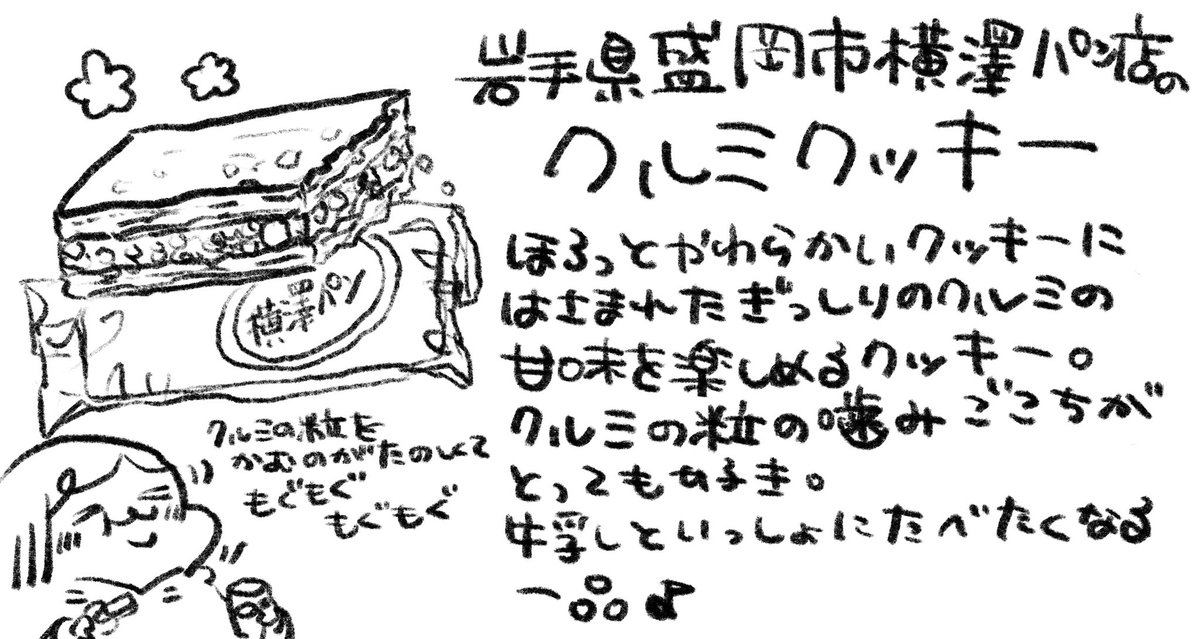 岩手県盛岡市横澤パン店の
クルミクッキー
ほろっとやわらかいクッキーに
はさまれたぎっしりのクルミの
甘味を楽しめるクッキー。
クルミの粒の噛みごこちが
とってもすき。
牛乳しといっしょにたべたくなる
一品♪
横澤パン
クルミの粒を
かむのがたのしくて
もぐもぐ
もぐもぐ